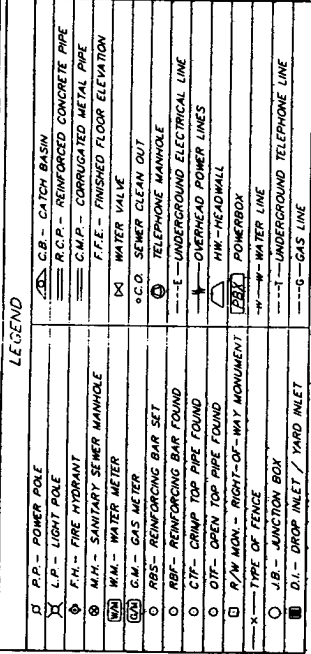 LEGEND
P.P. - POWER POLE
L.P. - LIGHT POLE
F.H. - FIRE HYDRANT
M.H. - SANITARY SEWER MANHOLE
W/M W.M. - WATER METER
G/M G.M. - GAS METER
RBS - REINFORCING BAR SET
RBF - REINFORCING BAR FOUND
CTF - CRIMP TOP PIPE FOUND
OTF - OPEN TOP PIPE FOUND
R/W MON. - RIGHT-OF-WAY MONUMENT
—x— TYPE OF FENCE
J.B. - JUNCTION BOX
D.I. - DROP INLET / YARD INLET
C.B. - CATCH BASIN
R.C.P. - REINFORCED CONCRETE PIPE
C.M.P. - CORRUGATED METAL PIPE
F.F.E. - FINISHED FLOOR ELEVATION
WATER VALVE
C.O. SEWER CLEAN OUT
TELEPHONE MANHOLE
---E— UNDERGROUND ELECTRICAL LINE
OVERHEAD POWER LINES
HW. - HEADWALL
PBX POWERBOX
-W-W- WATER LINE
---T— UNDERGROUND TELEPHONE LINE
---G— GAS LINE